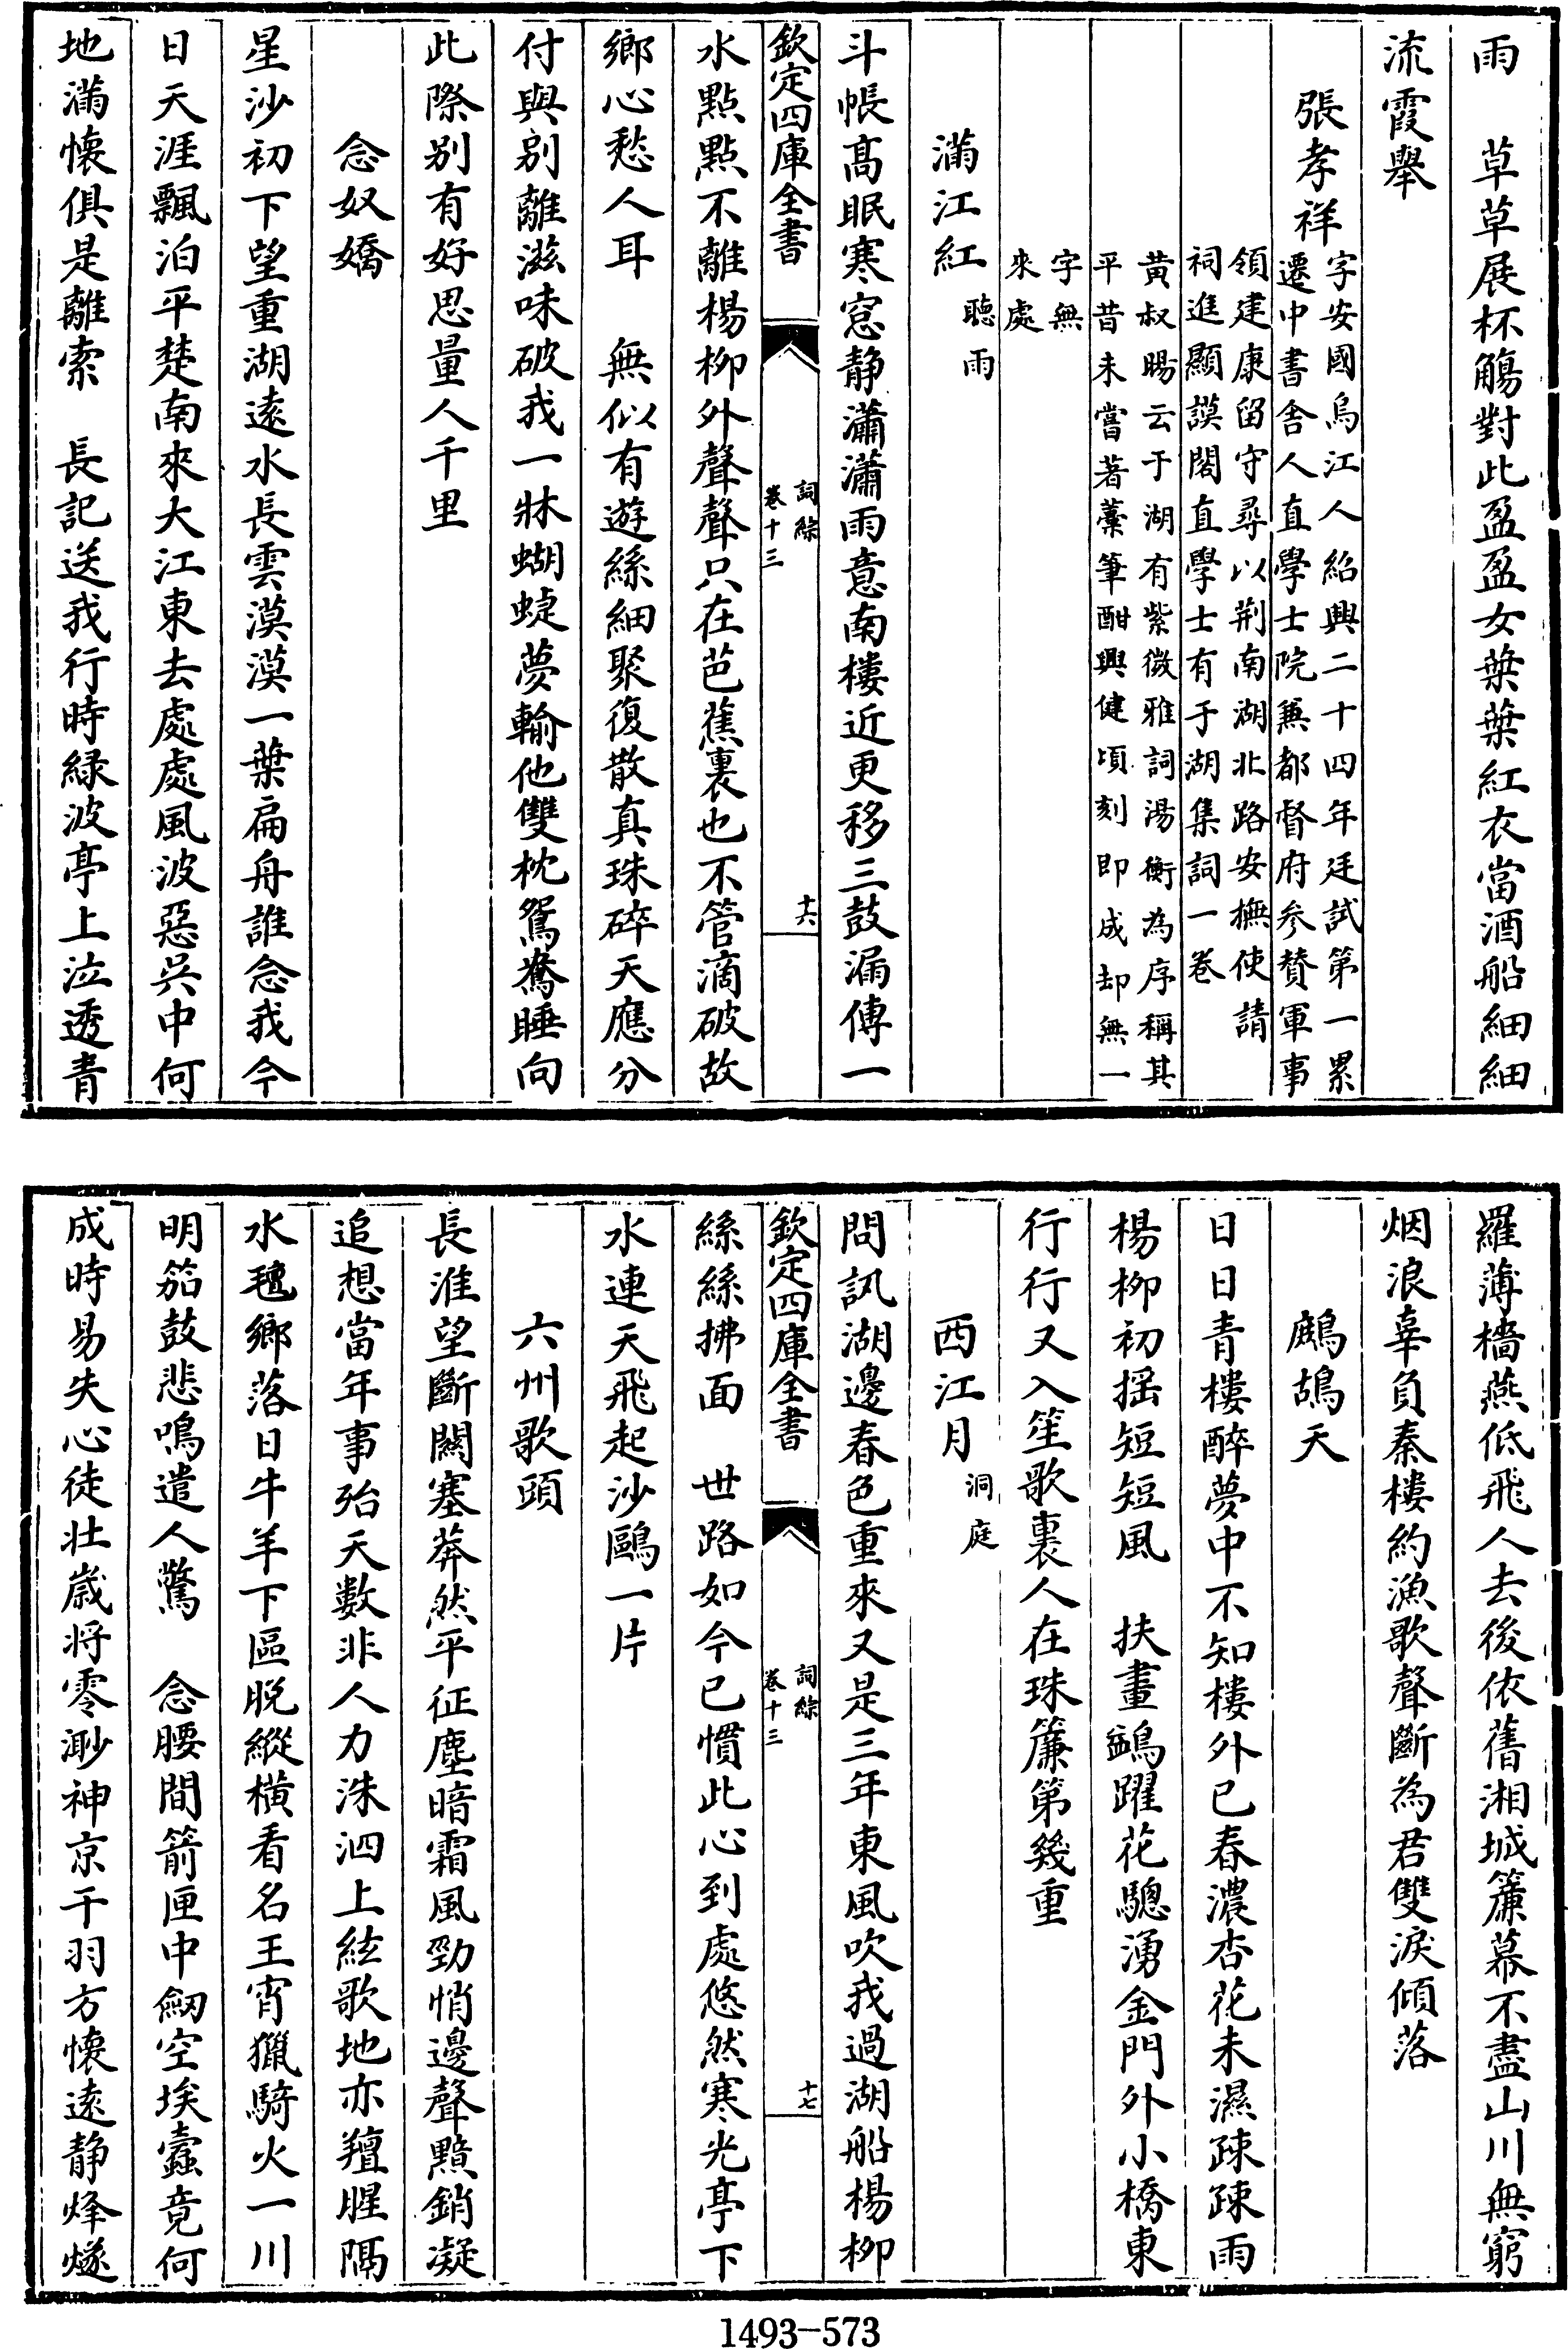 雨　草草展杯觴對此盈盈女葉葉紅衣當酒船細細
流霞舉
張孝祥字安國烏江人紹興二十四年廷試第一累
遷中書舍人直學士院兼都督府参贊軍事
領建康留守尋以荆南湖北路安撫使請
祠進顯謨閣直學士有于湖集詞一卷
黄叔暘云于湖有紫微雅詞湯衡為序稱其
平昔未嘗著藳筆酣興健頃刻即成却無一
字無
來處
滿江紅聽雨
斗帳髙眠寒窓静瀟瀟雨意南樓近更移三鼓漏傳一
欽定四庫全書
詞綜
卷十三
十六
水點點不離楊柳外聲聲只在芭蕉裏也不管滴破故
鄉心愁人耳　無似有遊絲細聚復散真珠碎天應分
付與别離滋味破我一牀蝴蜨夢輸他雙枕鴛鴦睡向
此際别有好思量人千里
念奴嬌
星沙初下望重湖逺水長雲漠漠一葉扁舟誰念我今
日天涯飄泊平楚南來大江東去處處風波惡吳中何
地滿懷俱是離索　長記送我行時緑波亭上泣透青
羅薄檣燕低飛人去後依舊湘城簾幕不盡山川無窮
烟浪辜負秦樓約漁歌聲斷為君雙淚傾落
鷓鴣天
日日青樓醉夢中不知樓外已春濃杏花未濕疎疎雨
楊柳初揺短短風　扶畫鷁躍花驄湧金門外小橋東
行行又入笙歌裏人在珠簾第幾重
西江月洞庭
問訊湖邊春色重來又是三年東風吹我過湖船楊柳
欽定四庫全書
詞綜
卷十三
十七
絲絲拂面　世路如今已慣此心到處悠然寒光亭下
水連天飛起沙鷗一片
六州歌頭
長淮望斷闗塞莽然平征塵暗霜風勁悄邊聲黯銷凝
追想當年事殆天數非人力洙泗上絃歌地亦羶腥隔
水氊鄉落日牛羊下區脱縱橫看名王宵獵騎火一川
明笳鼓悲鳴遣人驚　念腰間箭匣中劒空埃蠧竟何
成時易失心徒壯歳將零渺神京干羽方懷逺静烽燧
1493—573